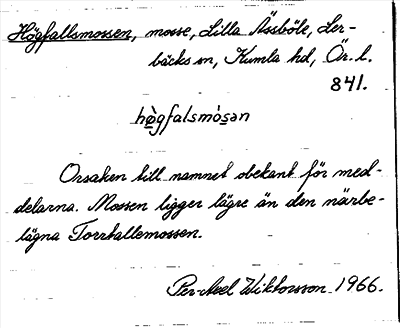 Högfallsmossen, mosse, Lilla Ässböle, Ler-
bäcks sn, Kumla hd, Ör. l.
841.
hø̀gfalsmòsan
Orsaken till namnet obekant för med-
delarna. Mossen ligger lägre än den närbe-
lägna Torrhallemossen.
Per-Axel Wiktorsson 1966.